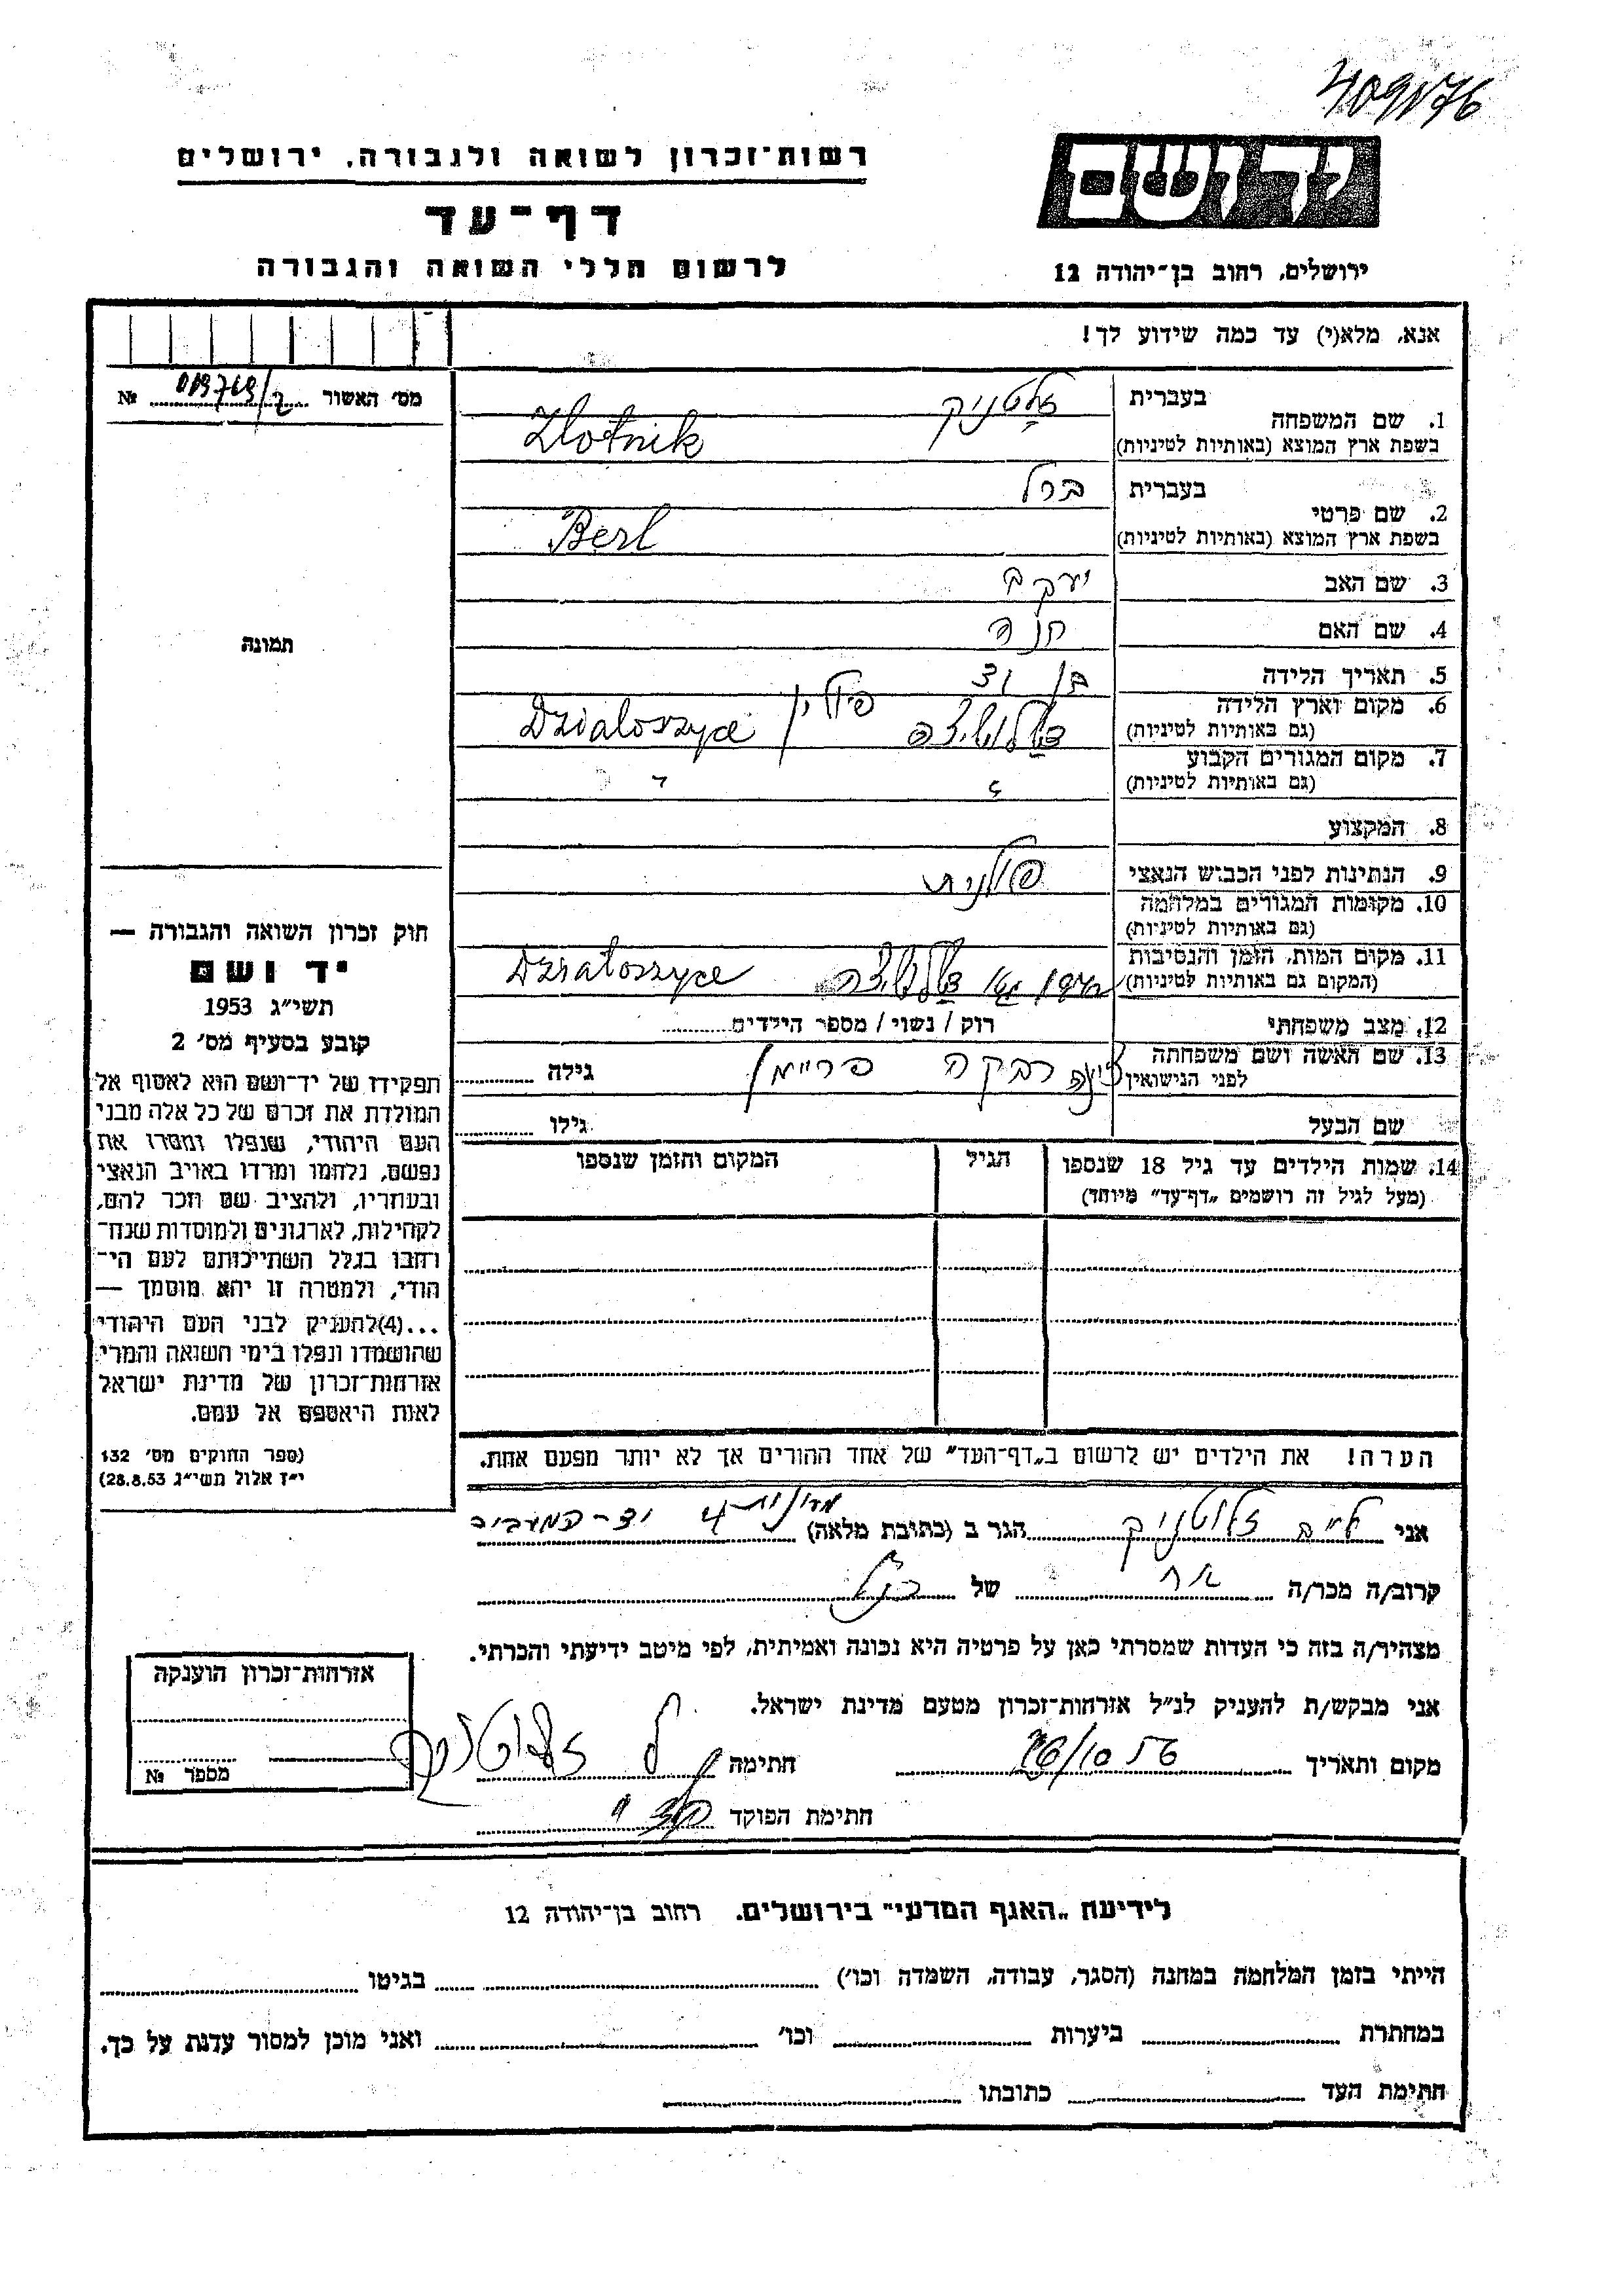 409176
רשות־זכרון לשואה ולגבורה, ירושלים
דף־עד
לרשום חללי השואה והגבורה
יד ושם
ירושלים, רחוב בן־יהודה 12
אנא, מלא(י) עד כמה שידוע לך!
מס׳ האשור № 019769/2
תמונה
חוק זכרון השואה והגבורה —
יד ושם
תשי״ג 1953
קובע בסעיף מס׳ 2
תפקידו של יד־ושם הוא לאסוף אל
המולדת את זכרם של כל אלה מבני
העם היהודי, שנפלו ומסרו את
נפשם, נלחמו ומרדו באויב הנאצי
ובעוזריו, ולהציב שם וזכר להם,
לקהילות, לארגונים ולמוסדות שנח־
רחבו בגלל השתייכותם לעם הי־
הודי, ולמטרה זו יהא מוסמך —
...(4)להעניק לבני העם היהודי
שהושמדו ונפלו בימי השואה והמרי
אזרחות־זכרון של מדינת ישראל
לאות היאספם אל עמם.
(ספר החוקים מס׳ 132
י״ז אלול תשי״ג 28.8.53)
1. שם המשפחה בעברית זלוטניק
בשפת ארץ המוצא (באותיות לטיניות) Zlotnik
2. שם פרטי בעברית ברל
בשפת ארץ המוצא (באותיות לטיניות) Berl
3. שם האב יעקב
4. שם האם חנה
5. תאריך הלידה בן
6. מקום וארץ הלידה פולין
(גם באותיות לטיניות) Dzialoszyce
7. מקום המגורים הקבוע
(גם באותיות לטיניות)
8. המקצוע
9. הנתינות לפני הכבוש הנאצי פולנית
10. מקומות המגורים במלחמה
(גם באותיות לטיניות)
11. מקום המות, הזמן והנסיבות
(המקום גם באותיות לטיניות) Dzialoszyce
12. מצב משפחתי רוק / נשוי / מספר הילדים
13. שם האשה ושם משפחתה
לפני הנישואין רבקה פריימן גילה
שם הבעל גילו
14. שמות הילדים עד גיל 18 שנספו הגיל המקום והזמן שנספו
(מעל לגיל זה רושמים „דף־עד” מיוחד)
הערה! את הילדים יש לרשום ב„דף־העד” של אחד ההורים אך לא יותר מפעם אחת.
אני חיים זלוטניק הגר ב (כתובת מלאה) 4
קרוב/ה מכר/ה אח של הנ״ל
מצהיר/ה בזה כי העדות שמסרתי כאן על פרטיה היא נכונה ואמיתית, לפי מיטב ידיעתי והכרתי.
אני מבקש/ת להעניק לנ״ל אזרחות־זכרון מטעם מדינת ישראל.
מקום ותאריך 26/10 56 חתימה ח. זלוטניק
חתימת הפוקד
אזרחות־זכרון הוענקה
מספר №
לידיעת „האגף המדעי” בירושלים, רחוב בן־יהודה 12
הייתי בזמן המלחמה במחנה (הסגר, עבודה, השמדה וכו׳) בגיטו
במחתרת ביערות וכו׳ ואני מוכן למסור עדות על כך.
חתימת העד כתובתו